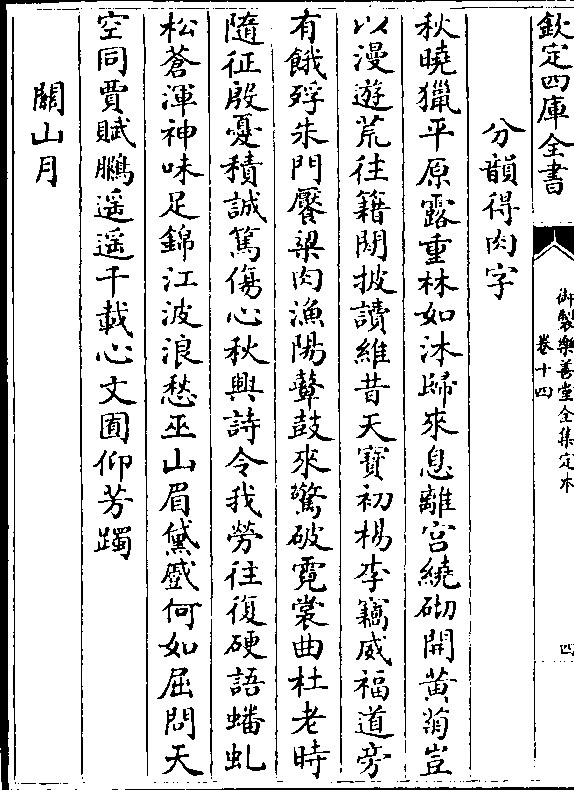 欽定四庫全書
御製樂善堂全集定本
卷十四
四
分韻得肉字
秋曉獵平原露重林如沐歸來息離宮繞砌開黃菊豈
以漫遊荒往籍閒披讀維昔天寶初楊李竊威福道旁
有餓殍朱門饜梁肉漁陽鼙鼓來驚破霓裳曲杜老時
隨征殷憂積誠篤傷心秋興詩令我勞往復硬語蟠虬
松蒼渾神味足錦江波浪愁巫山眉黛蹙何如屈問天
空同賈賦鵩遥遥千載心文囿仰芳躅
關山月